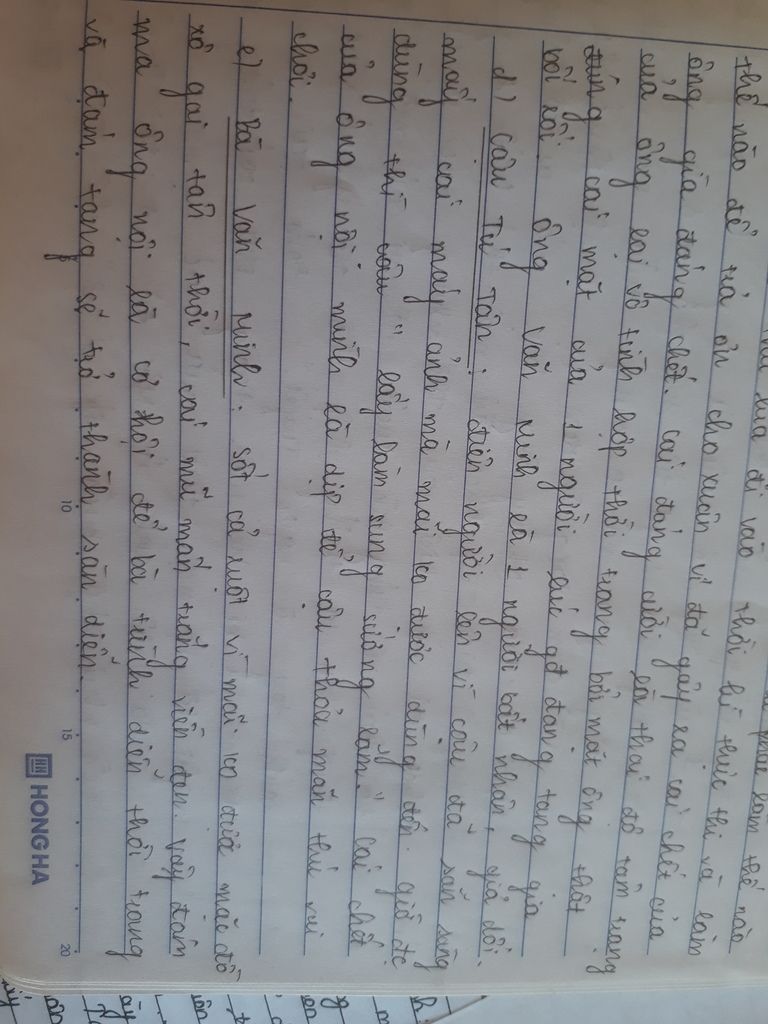 thế nào để trả ơn cho Xuân vì đã gây ra cái chết của
ông già đáng chết. Cái đáng cười là thái độ tâm trạng
của ông lại vô tình hợp thời trang bởi mặt ông thật
đúng cái mặt của 1 người lúc gđ đang tang gia
bối rối. Ông Văn Minh là 1 người bất nhân, giả dối.
d) Cậu Tú Tân: điên người lên vì cậu đã sẵn sàng
mấy cái máy ảnh mà mãi ko được dùng đến. giờ đc
dùng thì cậu " lấy làm sung sướng lắm." cái chết
của ông nội mình là dịp để cậu thỏa mãn thú vui
chơi.
e) Bà Văn Minh: sốt cả ruột vì mãi ko đưa mặc đồ
xô gai tân thời, cái mũ mấn trắng viền đen. Vậy đám
ma ông nội là cơ hội để bà trình diễn thời trang
và đám tang sẽ trở thành sàn diễn.
10
15
20
HH HONG HA